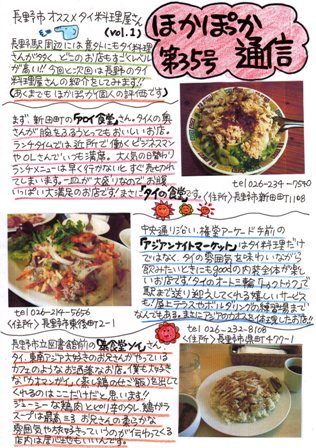 長野市オススメタイ料理屋さん
(vol.1)
ほかぽっか
第35号 通信
長野駅周辺には意外にもタイ料理屋
さんが多く、どこのお店もすごくレベル
が高い!!今回と次回は長野のタイ
料理屋さんの紹介をしてみます!
(あくまでもほかぽっか個人の評価です)
まず、新田町の「タイ食堂」さん。タイの奥
さんが腕をふるうとってもおいしいお店。
ランチタイムでは近所で働くビジネスマン
やOLさんでいつも満席。大人気の日替わり
ランチメニューは早く行かないとすぐ売り切れ
てしまいます。一皿が大盛りなのでお腹
いっぱい大満足のお店です!まさに「タイの食堂」です。
tel 026-234-7540
<住所> 長野市新田町1108
中央通り沿い、権堂アーケード手前の
「アジアンナイトマーケット」はタイ料理だけ
ではなく、タイの雰囲気を味わいながら
飲みたいときにもgoodの内装全体が楽し
いお店です!タイのオート三輪「トゥクトゥク」で
駅まで送り迎えしてくれる嬉しいサービス
も!屋上テラスやボルダリングの練習場まで
なんでもある。まさにアジアのカオスを体現したお店!!
tel 026-214-5656
<住所> 長野市東後町2-1
tel 026-232-8108
<住所> 長野市県町477-1
長野市立図書館前の
タイ、東南アジア大好きのお兄さんがやっている
カフェのようなお洒落なお店。僕も大好き
な「カオマンガイ」(蒸し鶏のせご飯)を出して
くれるのはここだけだと思います!!
ジューシーな鶏肉とピリ辛のタレ、鶏がら
スープは最高ニョ お兄さんの柔らかな
雰囲気やお好きっていうのが伝わってくる
店内は居心地もいいんです。